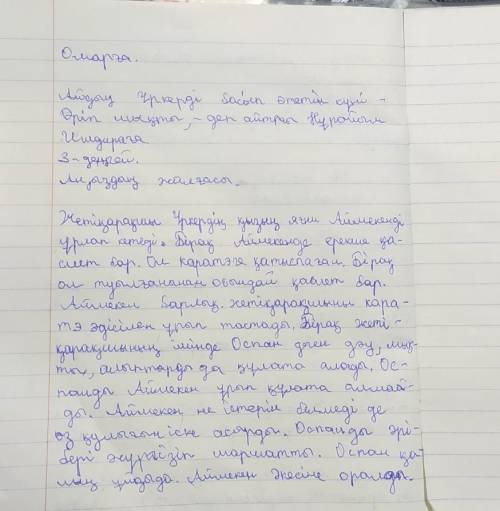 Омарға.
Айдың Үркерді басып өтетін күні -
Өріп шықты, - деп айтты Нұрайым
Ишдараға
3-деңгей.
Аңыздың жалғасы.
Жетіқарақшы Үркердің қызың яғни Аймекенді
ұрлап кетеді. Бірақ Аймекенде ерекше қа-
сиет бар. Ол каратэге қатыспаған. Бірақ
ол туылғаннан осындай қабілет бар.
Аймекен барлық жетіқарақшыны кара-
тэ әдісімен ұрып тастады. Бірақ жеті-
қарақшының ішінде Оспан деген дәу, мық-
ты, алыптарды да құлата алады. Ос-
панды Аймекен ұрып құлата алмай-
ды. Аймекен не істерін білмеді де
өз құлығын іске асырды. Оспанды әрі-
бері жүргізіп шаршатты. Оспан қа-
лың ұйқыда. Аймекен әкесіне оралды.